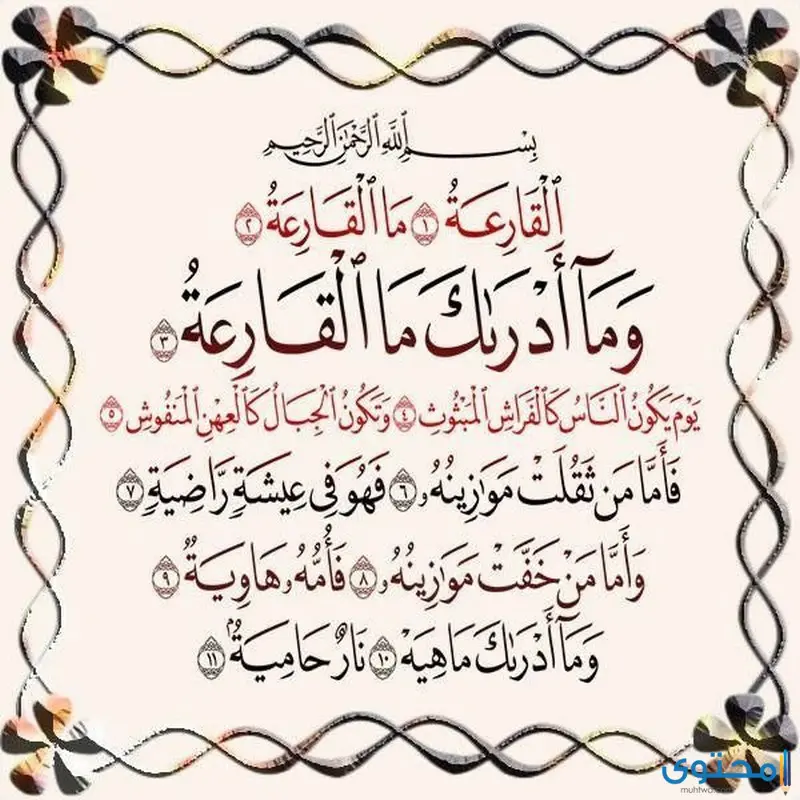 بِسْمِ ٱللَّهِ ٱلرَّحْمَٰنِ ٱلرَّحِيمِ
ٱلْقَارِعَةُ ١ مَا ٱلْقَارِعَةُ ٢
وَمَآ أَدْرَىٰكَ مَا ٱلْقَارِعَةُ ٣
يَوْمَ يَكُونُ ٱلنَّاسُ كَٱلْفَرَاشِ ٱلْمَبْثُوثِ ٤ وَتَكُونُ ٱلْجِبَالُ كَٱلْعِهْنِ ٱلْمَنفُوشِ ٥
فَأَمَّا مَن ثَقُلَتْ مَوَٰزِينُهُۥ ٦ فَهُوَ فِى عِيشَةٍ رَّاضِيَةٍ ٧
وَأَمَّا مَنْ خَفَّتْ مَوَٰزِينُهُۥ ٨ فَأُمُّهُۥ هَاوِيَةٌ ٩
وَمَآ أَدْرَىٰكَ مَا هِيَهْ ١٠ نَارٌ حَامِيَةٌۢ ١١
محتوى